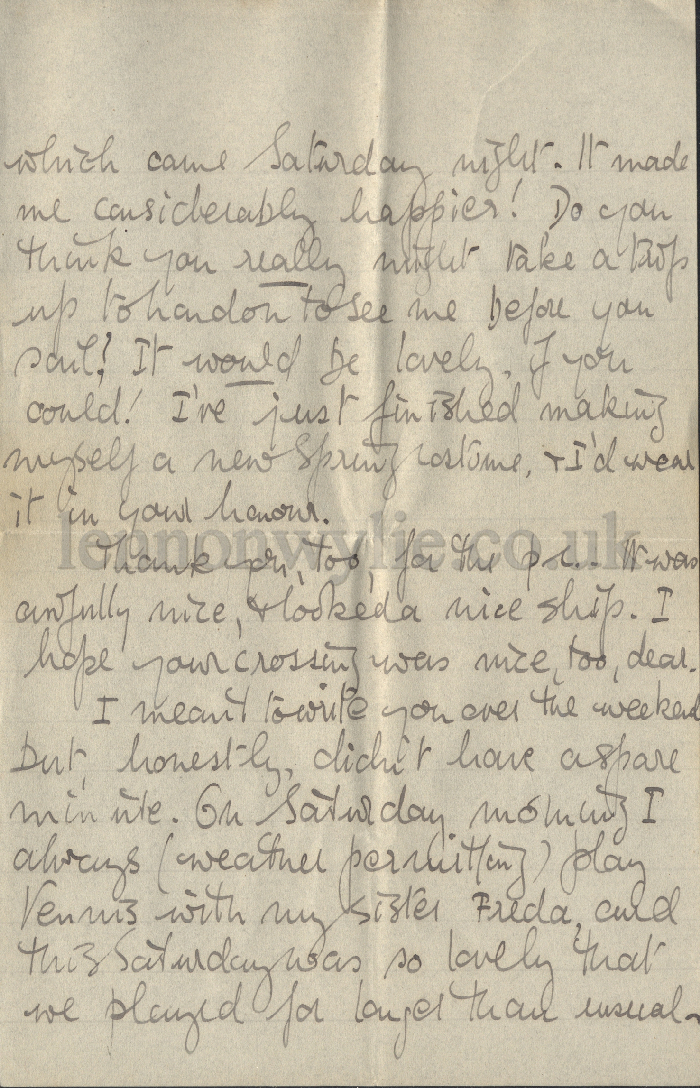 which came Saturday night. It made
me considerably happier! Do you
think you really might take a trip
up to London to see me before you
sail? It would be lovely, if you
could! I've just finished making
myself a new Spring costume, & I'd wear
it in your honour.
leanonwylie.co.uk
Thank you, too, for the p.c.. It was
awfully nice, & looked a nice ship. I
hope your crossing was nice, too, dear.
I meant to write you over the weekend
but, honestly, didn't have a spare
minute. On Saturday morning I
always (weather permitting) play
tennis with my sister Freda, and
this Saturday was so lovely that
we played for longer than usual -